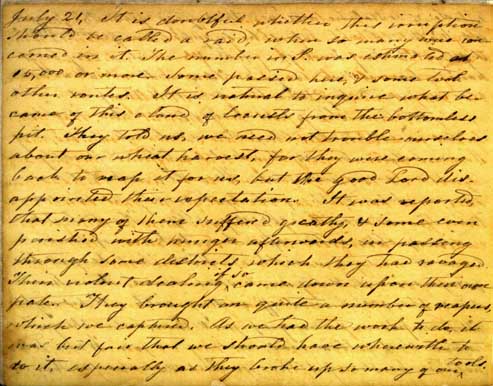 July 21, It is doubtful whether this irruption
should be called a raid when so many were con
cerned in it. The number in P. was estimated at
10,000 or more some passed here, & some took
other routes. It is natural to inquire what be
came of this cloud of locusts from the bottomless
pit. They told us, we need not trouble ourselves
about our wheat harvest, for they were coming
back to reap it for us, but the good Lord dis-
appointed their expectation. It was reported
that many of them suffered greatly, & some even
perished with hunger afterwards, in passing
through some districts which they had ravaged.
Their violent dealing, if so came down upon their own
pates. They brought on quite a number of reapers,
which we captured. As we had the work to do, it
was but fair that we should have wherewith to
do it, especially as they broke up so many of our tools.